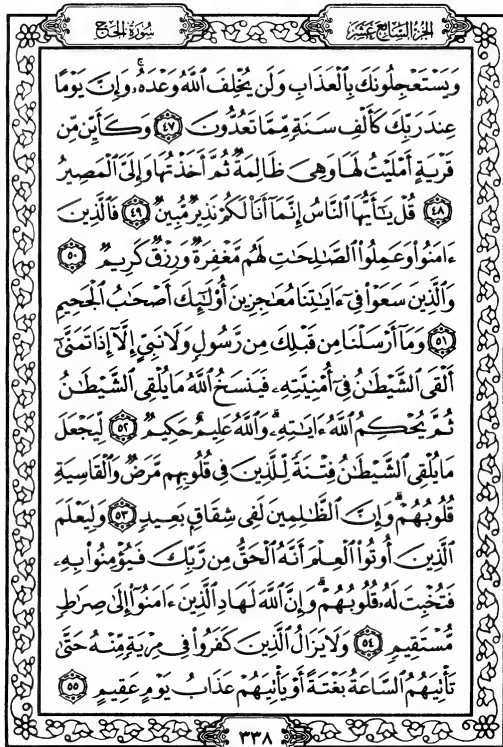 الجزء السابع عشر
سورة الحج
وَيَسْتَعْجِلُونَكَ بِالْعَذَابِ وَلَن يُخْلِفَ اللَّهُ وَعْدَهُ ۚ وَإِنَّ يَوْمًا
عِندَ رَبِّكَ كَأَلْفِ سَنَةٍ مِّمَّا تَعُدُّونَ ٤٧ وَكَأَيِّن مِّن
قَرْيَةٍ أَمْلَيْتُ لَهَا وَهِيَ ظَالِمَةٌ ثُمَّ أَخَذْتُهَا وَإِلَيَّ الْمَصِيرُ
٤٨ قُلْ يَٰٓأَيُّهَا النَّاسُ إِنَّمَآ أَنَا۠ لَكُمْ نَذِيرٌ مُّبِينٌ ٤٩ فَالَّذِينَ
ءَامَنُوا وَعَمِلُوا الصَّٰلِحَٰتِ لَهُم مَّغْفِرَةٌ وَرِزْقٌ كَرِيمٌ ٥٠
وَالَّذِينَ سَعَوْا فِىٓ ءَايَٰتِنَا مُعَٰجِزِينَ أُو۟لَٰٓئِكَ أَصْحَٰبُ الْجَحِيمِ
٥١ وَمَآ أَرْسَلْنَا مِن قَبْلِكَ مِن رَّسُولٍ وَلَا نَبِىٍّ إِلَّآ إِذَا تَمَنَّىٰٓ
أَلْقَى الشَّيْطَٰنُ فِىٓ أُمْنِيَّتِهِۦ فَيَنسَخُ اللَّهُ مَا يُلْقِى الشَّيْطَٰنُ
ثُمَّ يُحْكِمُ اللَّهُ ءَايَٰتِهِۦ ۗ وَاللَّهُ عَلِيمٌ حَكِيمٌ ٥٢ لِّيَجْعَلَ
مَا يُلْقِى الشَّيْطَٰنُ فِتْنَةً لِّلَّذِينَ فِى قُلُوبِهِم مَّرَضٌ وَالْقَاسِيَةِ
قُلُوبُهُمْ ۗ وَإِنَّ الظَّٰلِمِينَ لَفِى شِقَاقٍۭ بَعِيدٍ ٥٣ وَلِيَعْلَمَ
الَّذِينَ أُوتُوا الْعِلْمَ أَنَّهُ الْحَقُّ مِن رَّبِّكَ فَيُؤْمِنُوا بِهِۦ
فَتُخْبِتَ لَهُۥ قُلُوبُهُمْ ۗ وَإِنَّ اللَّهَ لَهَادِ الَّذِينَ ءَامَنُوٓا إِلَىٰ صِرَٰطٍ
مُّسْتَقِيمٍ ٥٤ وَلَا يَزَالُ الَّذِينَ كَفَرُوا فِى مِرْيَةٍ مِّنْهُ حَتَّىٰ
تَأْتِيَهُمُ السَّاعَةُ بَغْتَةً أَوْ يَأْتِيَهُمْ عَذَابُ يَوْمٍ عَقِيمٍ ٥٥
٣٣٨